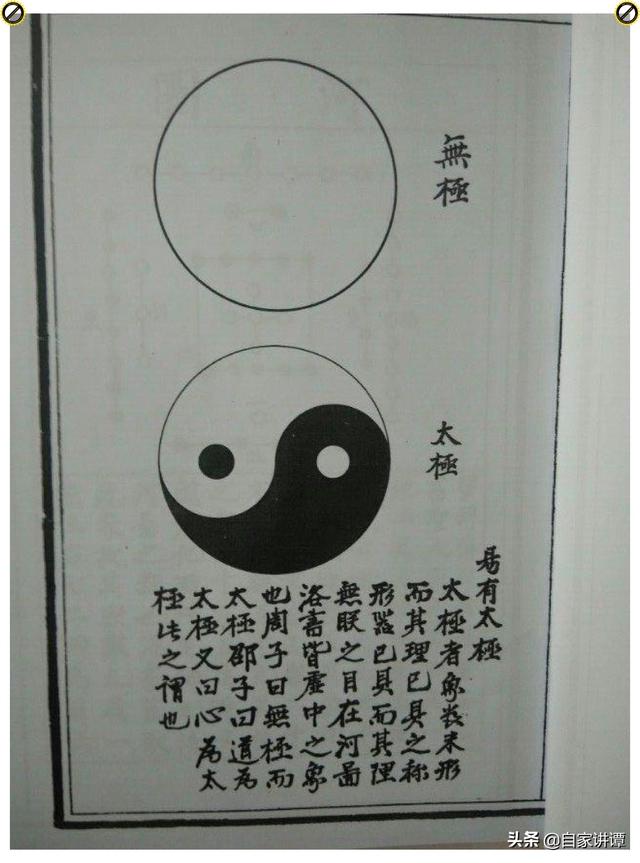 無極
太極
易有太極
太極者象数未形
而其理已具之称
形器已具而其理
無眹之目在河圖
洛書皆虛中之象
也周子曰無極而
太極邵子曰道為
太極又曰心為太
極此之謂也
头条 @自家讲谭